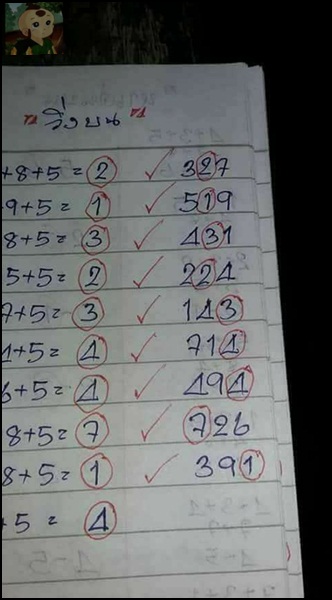 "วิ่งบน"
+8+5=2 ✓ 327
9+5=1 ✓ 519
8+5=3 ✓ 431
5+5=2 ✓ 224
7+5=3 ✓ 143
1+5=4 ✓ 714
6+5=4 ✓ 494
8+5=7 ✓ 726
8+5=1 ✓ 391
+5=4